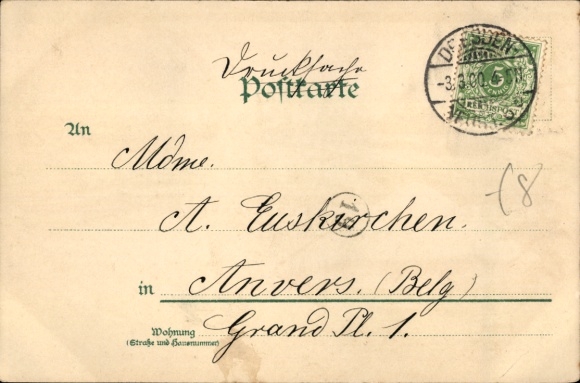 Drucksache
Postkarte
DRESDEN
An
Mdme.
A. Euskirchen.
in Anvers. (Belg)
Grand Pl. 1.
Wohnung
(Straße und Hausnummer)
(8